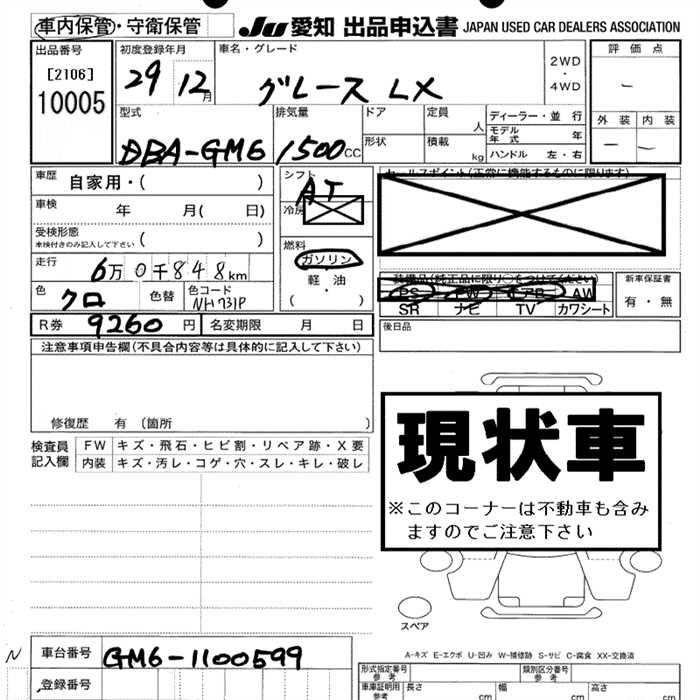 車内保管・守衛保管 JU愛知 出品申込書 JAPAN USED CAR DEALERS ASSOCIATION
出品番号 初度登録年月 車名・グレード 2WD ・ 4WD 評価点
[2106] 29 12月 グレース LX ー
10005
型式 排気量 ドア 定員 人 ディーラー・並行 外装 内装
DBA-GM6 1500CC 形状 積載 kg モデル年式 年 ー ー
ハンドル 左・右
車歴 自家用・( ) シフト AT セールスポイント(正常に機能するものに限ります)
車検 年 月( 日) 冷房
受検形態 ( )
車検付きのみ記入して下さい
燃料
走行 6万0千848km ガソリン・
軽油
・
( )
装備品(純正品に限り○をつけてください) 新車保証書
色 クロ 色替 色コード NH731P PS PW エアB AW 有・無
SR ナビ TV カワシート
R券 9260円 名変期限 月 日 後日品
注意事項申告欄(不具合内容等は具体的に記入して下さい)
修復歴 有 (箇所 )
現状車
※このコーナーは不動車も含み
ますのでご注意下さい
検査員記入欄 FW キズ・飛石・ヒビ割・リペア跡・X要
内装 キズ・汚レ・コゲ・穴・スレ・キレ・破レ
スペア
A-キズ E-エクボ U-凹み W-補修跡 S-サビ C-腐食 XX-交換済
N 車台番号 GM6-1100599
登録番号
形式指定番号 参考 類別区分番号 参考
車庫証明用 参考 長さ cm 幅 cm 高さ cm